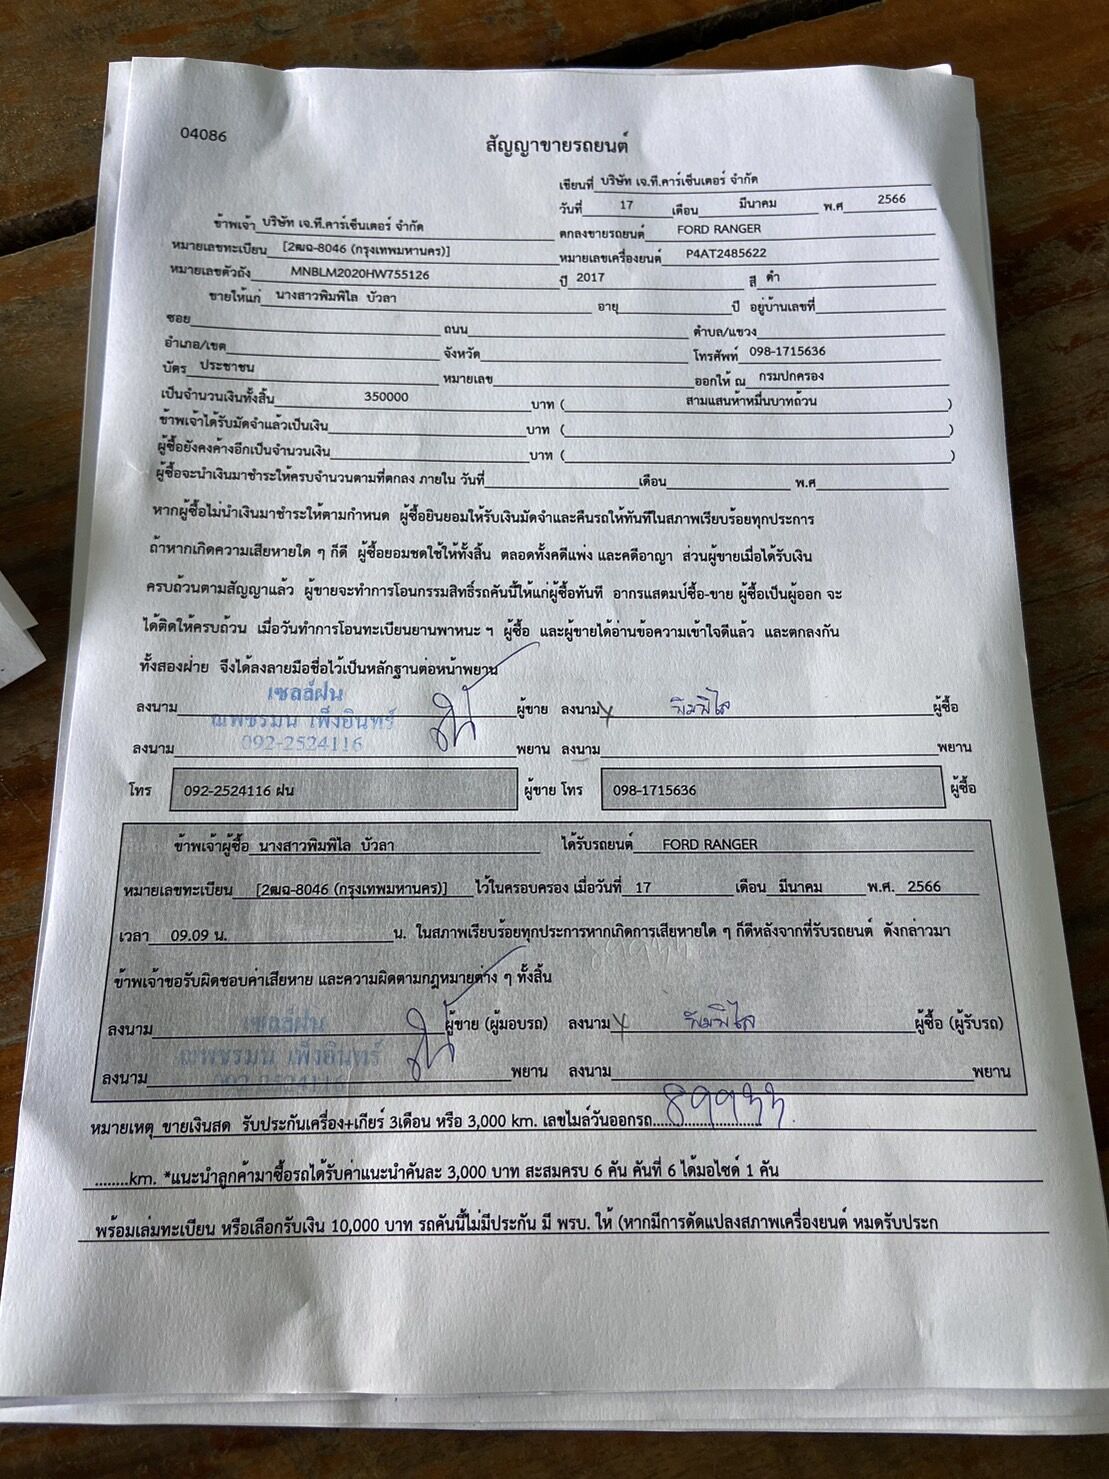 04086
สัญญาขายรถยนต์
เขียนที่ บริษัท เจ.ที.คาร์เซ็นเตอร์ จำกัด
วันที่ 17 เดือน มีนาคม พ.ศ 2566
ข้าพเจ้า บริษัท เจ.ที.คาร์เซ็นเตอร์ จำกัด ตกลงขายรถยนต์ FORD RANGER
หมายเลขทะเบียน [2ฒฉ-8046 (กรุงเทพมหานคร)] หมายเลขเครื่องยนต์ P4AT2485622
หมายเลขตัวถัง MNBLM2020HW755126 ปี 2017 สี ดำ
ขายให้แก่ นางสาวพิมพิไล บัวลา อายุ ปี อยู่บ้านเลขที่
ซอย ถนน ตำบล/แขวง
อำเภอ/เขต จังหวัด โทรศัพท์ 098-1715636
บัตร ประชาชน หมายเลข ออกให้ ณ กรมปกครอง
เป็นจำนวนเงินทั้งสิ้น 350000 บาท ( สามแสนห้าหมื่นบาทถ้วน )
ข้าพเจ้าได้รับมัดจำแล้วเป็นเงิน บาท ( )
ผู้ซื้อยังคงค้างอีกเป็นจำนวนเงิน บาท ( )
ผู้ซื้อจะนำเงินมาชำระให้ครบจำนวนตามที่ตกลง ภายใน วันที่ เดือน พ.ศ
หากผู้ซื้อไม่นำเงินมาชำระให้ตามกำหนด ผู้ซื้อยินยอมให้รับเงินมัดจำและคืนรถให้ทันทีในสภาพเรียบร้อยทุกประการ
ถ้าหากเกิดความเสียหายใด ๆ ก็ดี ผู้ซื้อยอมชดใช้ให้ทั้งสิ้น ตลอดทั้งคดีแพ่ง และคดีอาญา ส่วนผู้ขายเมื่อได้รับเงิน
ครบถ้วนตามสัญญาแล้ว ผู้ขายจะทำการโอนกรรมสิทธิ์รถคันนี้ให้แก่ผู้ซื้อทันที อากรแสตมป์ซื้อ-ขาย ผู้ซื้อเป็นผู้ออก จะ
ได้ติดให้ครบถ้วน เมื่อวันทำการโอนทะเบียนยานพาหนะ ฯ ผู้ซื้อ และผู้ขายได้อ่านข้อความเข้าใจดีแล้ว และตกลงกัน
ทั้งสองฝ่าย จึงได้ลงลายมือชื่อไว้เป็นหลักฐานต่อหน้าพยาน
เซลล์ฝน
ลงนาม ผู้ขาย ลงนาม พิมพิไล ผู้ซื้อ
ณพชรมน เพ็งอินทร์
092-2524116
ลงนาม พยาน ลงนาม พยาน
โทร 092-2524116 ฝน ผู้ขาย โทร 098-1715636 ผู้ซื้อ
ข้าพเจ้าผู้ซื้อ นางสาวพิมพิไล บัวลา ได้รับรถยนต์ FORD RANGER
หมายเลขทะเบียน [2ฒฉ-8046 (กรุงเทพมหานคร)] ไว้ในครอบครอง เมื่อวันที่ 17 เดือน มีนาคม พ.ศ. 2566
เวลา 09.09 น. น. ในสภาพเรียบร้อยทุกประการหากเกิดการเสียหายใด ๆ ก็ดีหลังจากที่รับรถยนต์ ดังกล่าวมา
ข้าพเจ้าขอรับผิดชอบค่าเสียหาย และความผิดตามกฎหมายต่าง ๆ ทั้งสิ้น
เซลล์ฝน
ลงนาม ผู้ขาย (ผู้มอบรถ) ลงนาม พิมพิไล ผู้ซื้อ (ผู้รับรถ)
ณพชรมน เพ็งอินทร์
092-2524116
ลงนาม พยาน ลงนาม พยาน
หมายเหตุ ขายเงินสด รับประกันเครื่อง+เกียร์ 3เดือน หรือ 3,000 km. เลขไมล์วันออกรถ..............................
........km. *แนะนำลูกค้ามาซื้อรถได้รับค่าแนะนำคันละ 3,000 บาท สะสมครบ 6 คัน คันที่ 6 ได้มอไซด์ 1 คัน
พร้อมเล่มทะเบียน หรือเลือกรับเงิน 10,000 บาท รถคันนี้ไม่มีประกัน มี พรบ. ให้ (หากมีการดัดแปลงสภาพเครื่องยนต์ หมดรับประก